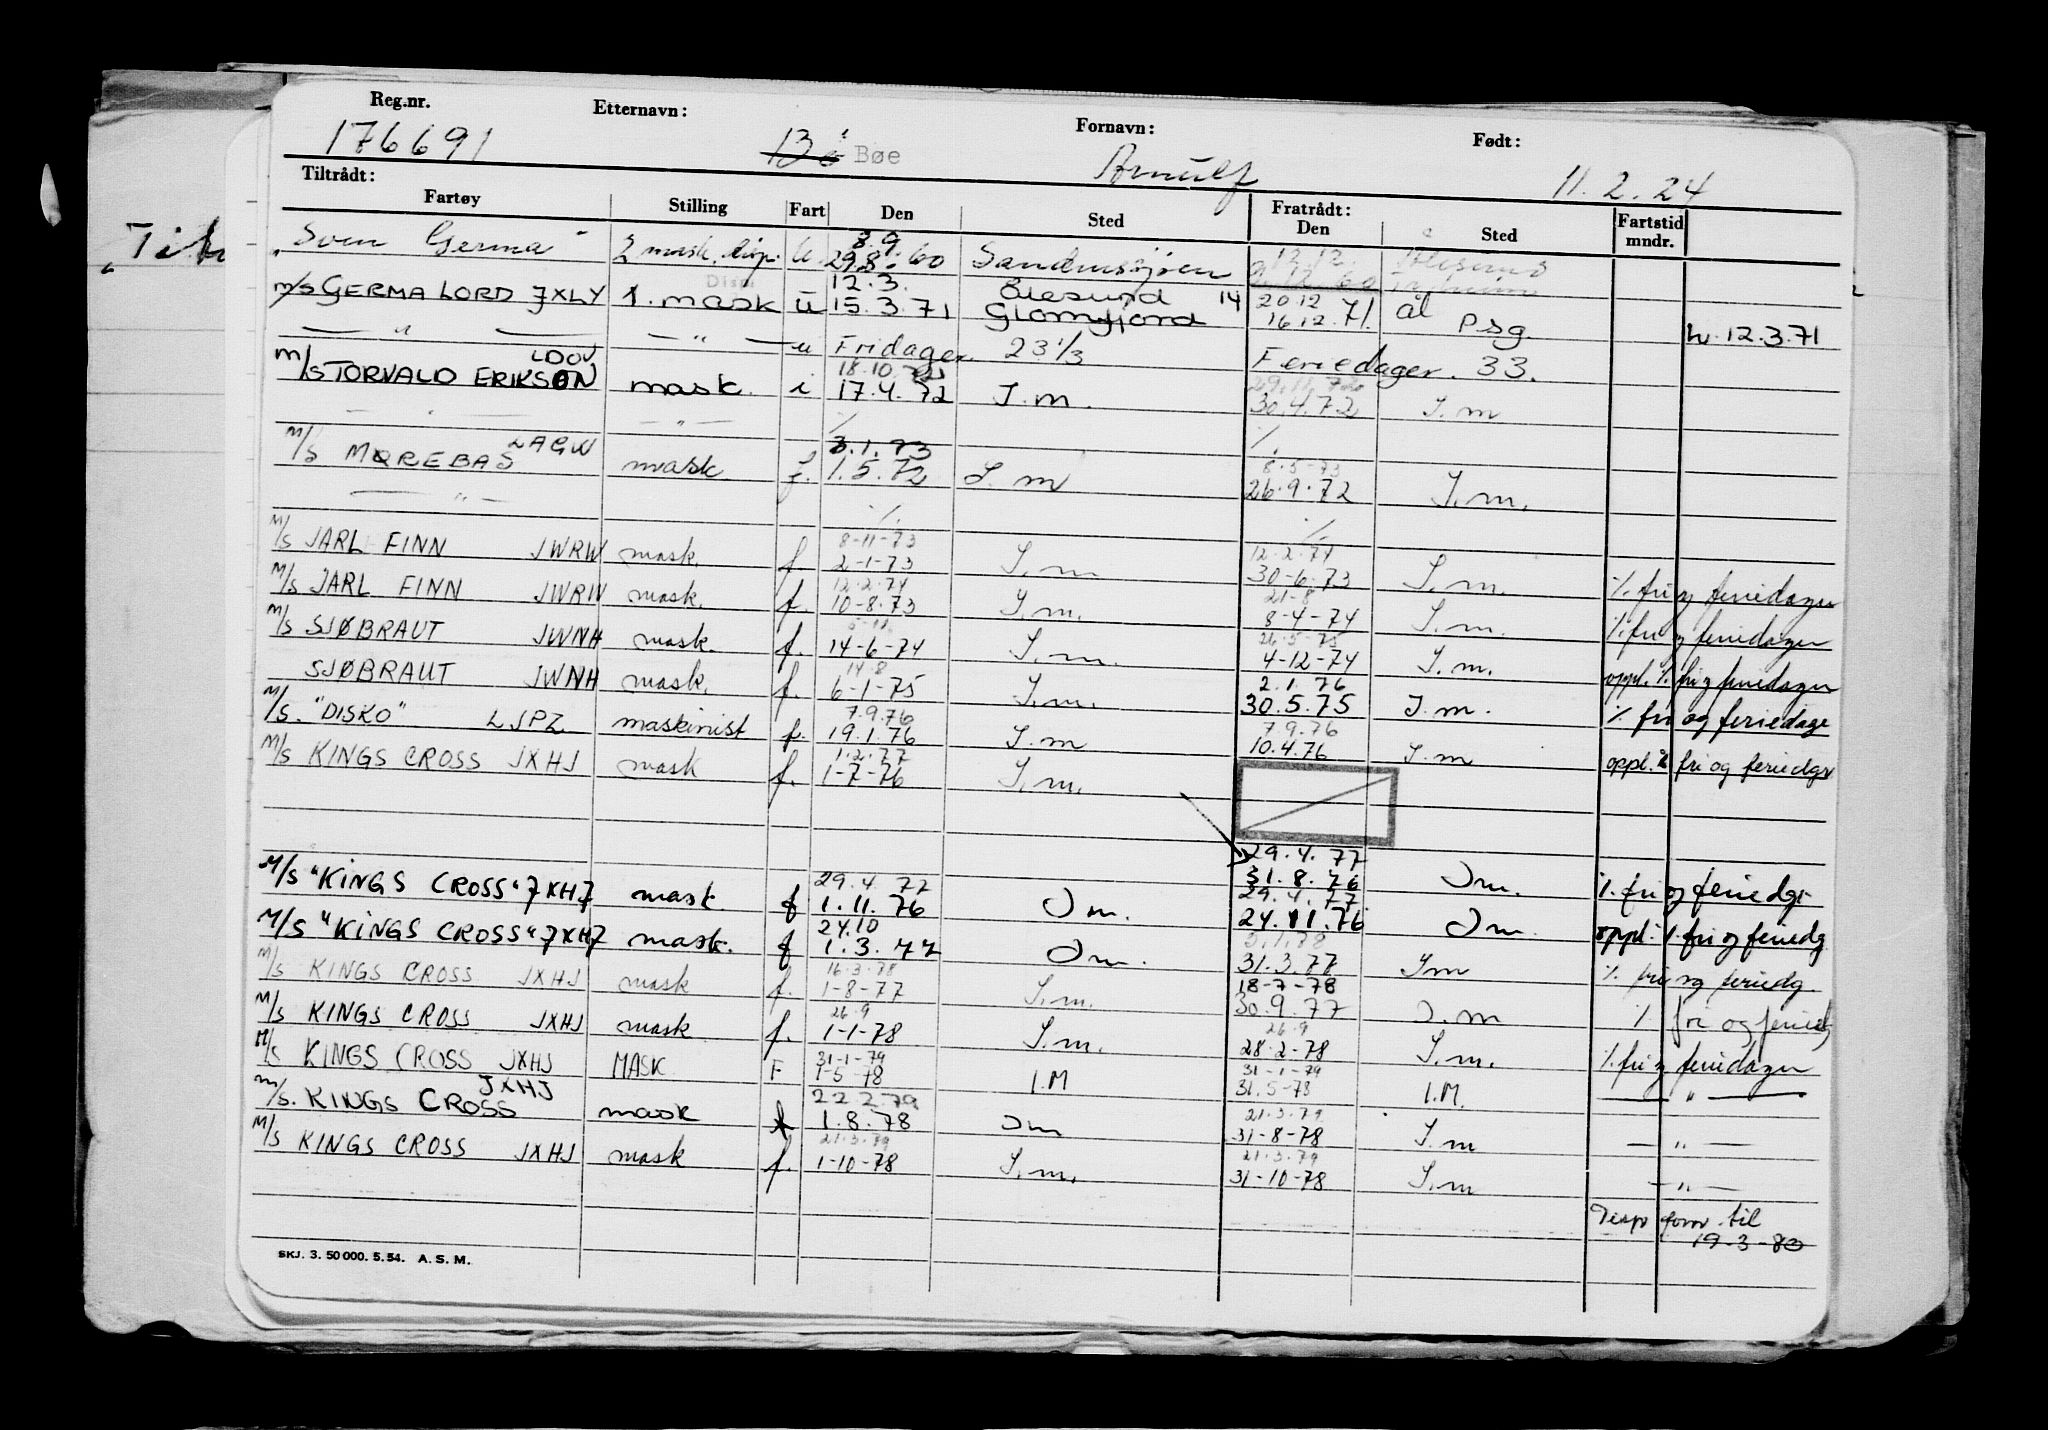 Reg.nr. Etternavn: Fornavn: Født:
176691 Bö Bøe Arnulf 11.2.24
Tiltrådt: Fratrådt:
Fartøy Stilling Fart Den Sted Den Sted Fartstid mndr.
8.9 12.12.
"Sven Germa" 2 mask. disp. u 29.8.60 Sandnessjøen
Disp 12.3. Ålesund 14 20.12
M/S GERMA LORD JXLY 1. mask u 15.3.71 Glomfjord 16.12.71. ål psg.
— " — — " — u Fridager 23 1/3 Feriedager. 33. w. 12.3.71
LDOV 18.10.72
M/S TORVALD ERIKSON mask. i 17.4.72 I.m. 30.4.72 I.m
— " — — " — % %
LAGW 3.1.73 8.5-73
M/S MØREBAS mask f. 1.5.72 I.m 26.9.72 I.m.
— " — % %
8-11-73 12.2.74
M/S JARL FINN JWRW mask. f. 2-1-73 I.m 30-6.73 I.m. % fri og feriedager
12.2.74 21-8
M/S JARL FINN JWRW mask. f. 10-8.73 I.m. 8-4-74 I.m. % fri og feriedager
26.5-75
M/S SJØBRAUT JWNH mask. f. 14-6-74 I.m. 4-12-74 I.m. oppl. % fri og feriedager
14.8 2.1.76
SJØBRAUT JWNH mask. f. 6-1-75 I.m. 30.5.75 I.m. % fri og feriedage
7.9.76 7.9.76
M/S. "DISKO" LJPZ maskinist f. 19.1.76 I.m 10.4.76 I.m oppl. % fri og feriedgr
1.2.77
M/S KINGS CROSS JXHJ mask f. 1-7-76 I.m.
29.4.77
29.4.77 31.8.76 Im. % fri og feriedgr
M/S "KINGS CROSS" JXHJ mask f 1.11.76 Im. 29.4.77.
24.10 24.11.76 Im. oppl. % fri og feriedg
M/S "KINGS CROSS" JXHJ mask. f 1.3.77 Im. 5.1.78
16.3.78 31.3.77 Im % fri og feriedg.
M/S KINGS CROSS JXHJ mask f. 1-8-77 I.m. 18-7-78
26.9 30.9.77 I.m % fri og feriedg
M/S KINGS CROSS JXHJ mask f. 1-1-78 I.m. 26.9
31-1-79 28.2-78 I.m. % fri og feriedager
M/S KINGS CROSS JXHJ MASK F 1-5-78 I.M 31-1-79
JXHJ 22.2.79 31.5-78 I.M. — " —
M/S. KINGS CROSS mask f 1.8.78 Im 21.3.79
21.3.79 31-8-78 I.m — " —
M/S KINGS CROSS JXHJ mask f. 1-10-78 I.m. 21.3.79
31-10-78 I.m — " —
Disp forn. til
19-3-80
SKJ. 3. 50 000. 5. 54. A. S. M.